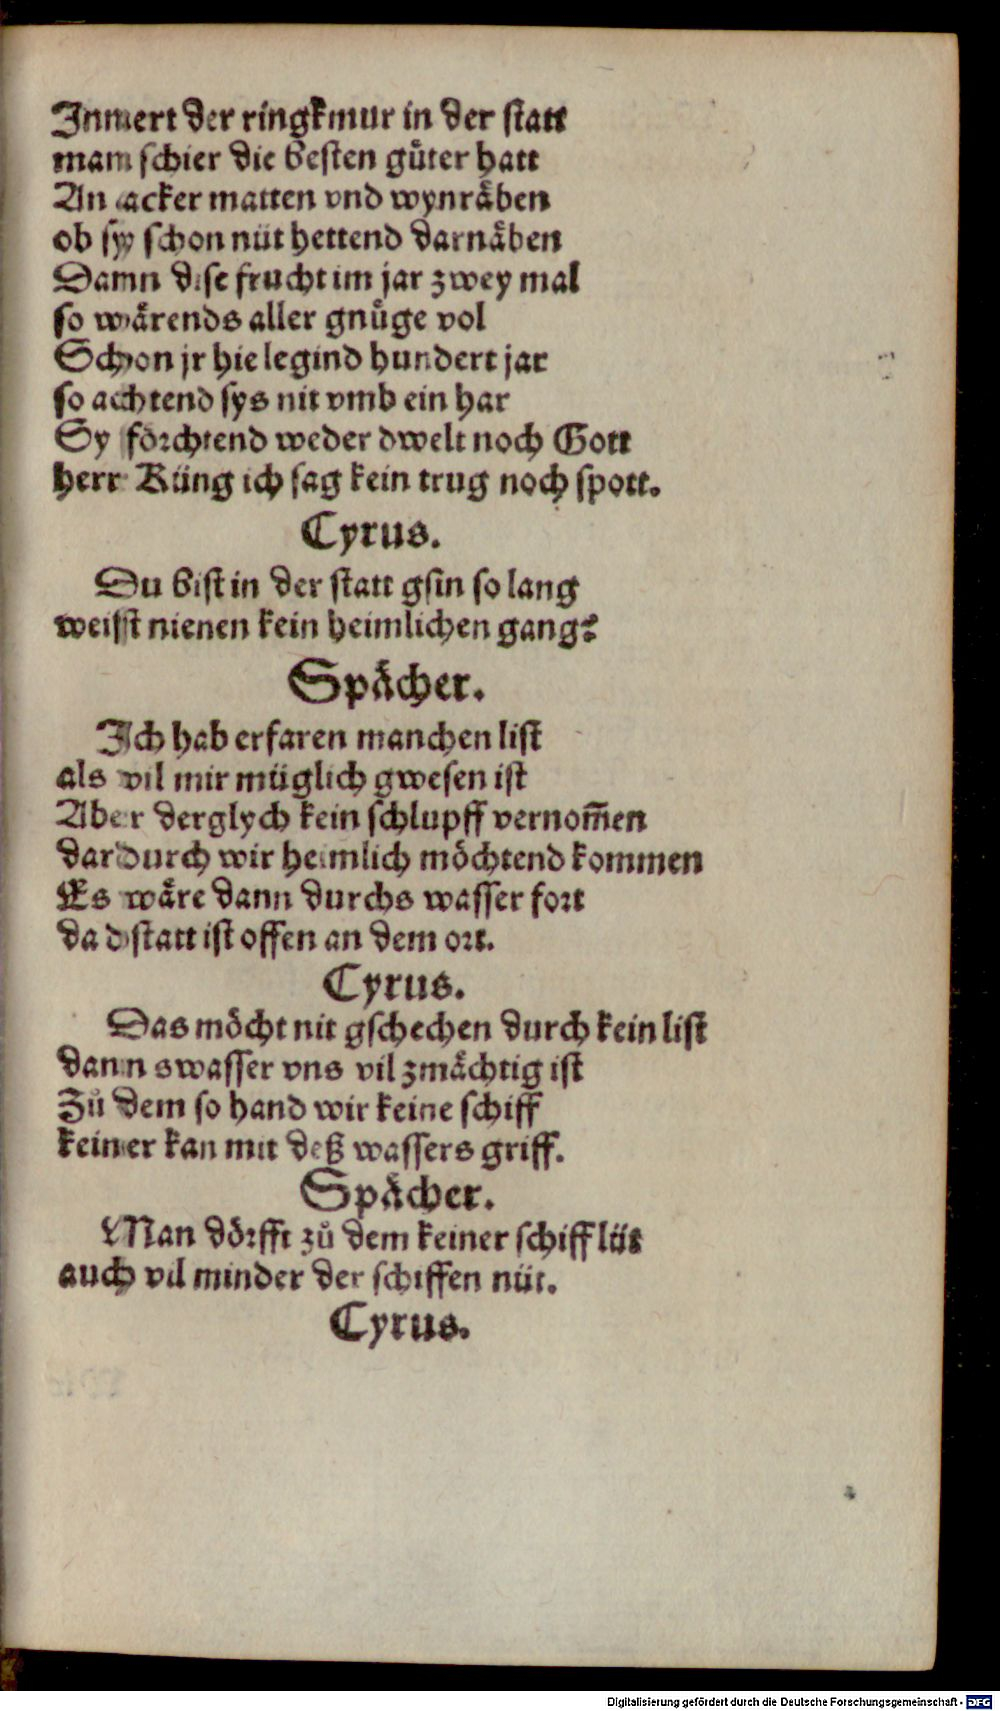 Innert der ringkmur in der statt
man schier die besten guͤter hatt
An acker matten vnd wynraͤben
ob sy schon nüt hettend darnaͤben
Dann dise frucht im jar zwey mal
so waͤrends aller gnuͤge vol
Schon jr hie legind hundert jar
so achtend sys nit vmb ein har
Sy foͤrchtend weder dwelt noch Gott
herr Küng ich sag kein trug noch spott.
Cyrus.
Du bist in der statt gsin so lang
weisst nienen kein heimlichen gang?
Spaͤcher.
Ich hab erfaren manchen list
als vil mir müglich gwesen ist
Aber derglych kein schlupff vernom̃en
dardurch wir heimlich moͤchtend kommen
Es waͤre dann durchs wasser fort
da dstatt ist offen an dem ort.
Cyrus.
Das moͤcht nit gschechen durch kein list
dann swasser vns vil zmaͤchtig ist
Zuͦ dem so hand wir keine schiff
keiner kan mit deß wassers griff.
Spaͤcher.
Man doͤrfft zuͦ dem keiner schifflüt
auch vil minder der schiffen nüt.
Cyrus.
Digitalisierung gefördert durch die Deutsche Forschungsgemeinschaft - DFG